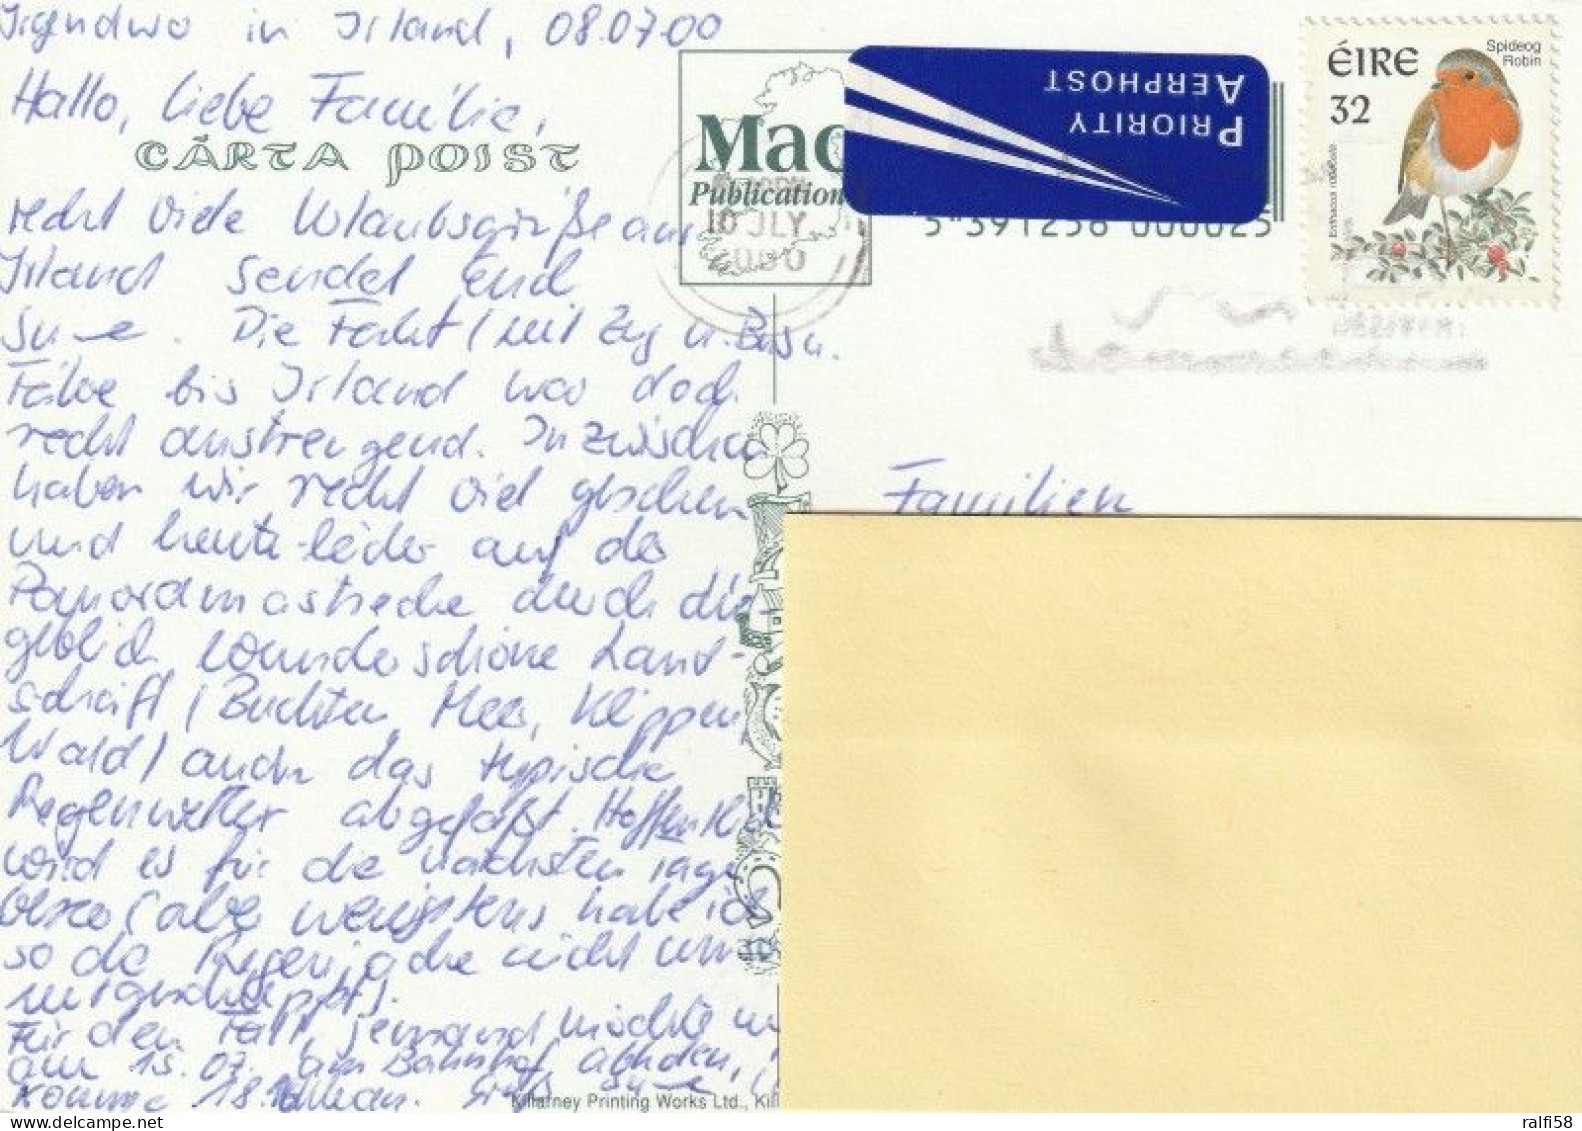 Irgendwo in Irland, 08.07.00
Hallo, liebe Familie,
CÁRTA POIST
recht viele Urlaubsgrüße aus
Irland sendet Euch
Die Fahrt (mit Zug u. Bus u.
Fähre bis Irland war doch
recht anstrengend. Inzwischen
haben wir recht viel gesehen
und heute leider auf der
Panoramastrecke durch die
wunderschöne Land-
schaft (Buchten, Meer, Klippen,
Wald) auch das typische
Regenwetter abgefaßt. Hoffentlich
wird es für die nächsten Tage
besser (aber wenigstens habe ich
so die Regenjacke nicht um-
mitgeschleppt).
Für den Fall, jemand möchte mich
am 15.07. am Bahnhof abholen, ich
komme 18. an. Gruß
Killarney Printing Works Ltd., Kil
Mac
Publication
10 JLY
PRIORITY
AERPHOST
5 391256 000025
ÉIRE
32
Spideog
Robin
Erithacus rubecula
Familien
delcampe.net
ralfi58